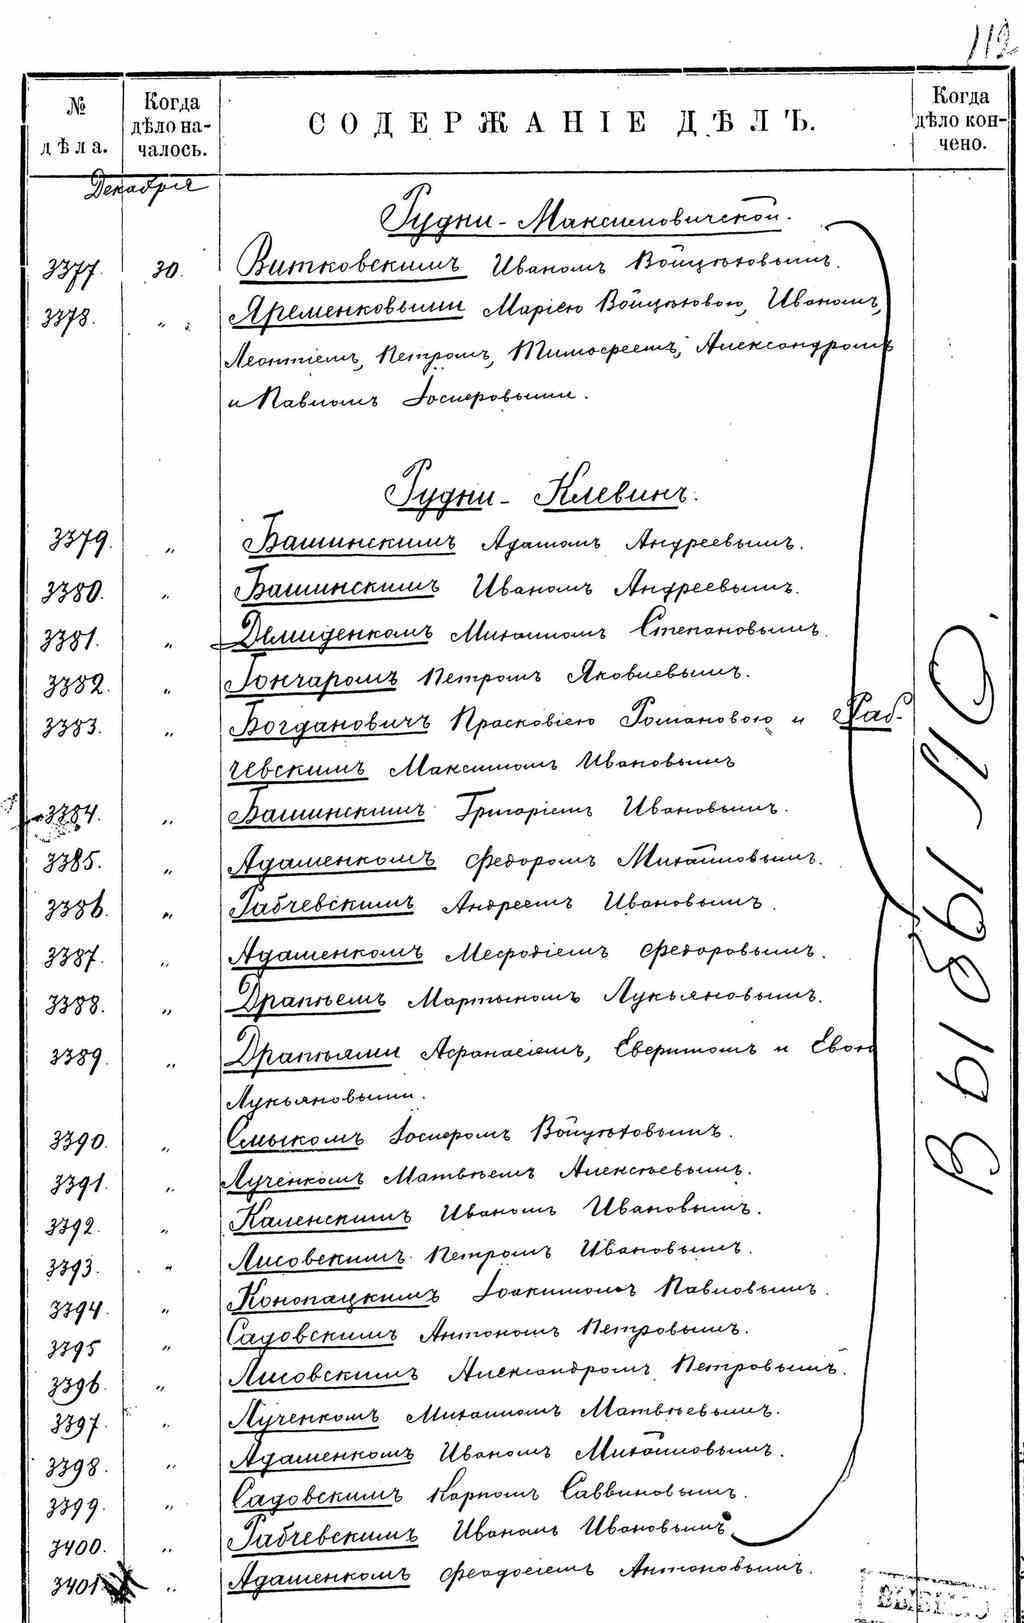 112
№ дѣла.
Когда дѣло началось.
СОДЕРЖАНІЕ ДѢЛЪ.
Когда дѣло кончено.
Декабря
Рудни-Максимовичской.
3377. 30. Витковскимъ Иваномъ Войцѣховымъ.
3378. " Яременковыми Маріею Войцѣховою, Иваномъ,
Леонтіемъ, Петромъ, Тимофеемъ, Александромъ
и Павломъ Іосифовыми.
Рудни-Клевинъ.
3379. " Башинскимъ Адамомъ Андреевымъ.
3380. " Башинскимъ Иваномъ Андреевымъ.
3381. " Демиденкомъ Михаиломъ Степановымъ.
3382. " Гончаромъ Петромъ Яковлевымъ.
3383. " Богдановичъ Прасковіею Романовою и Раб-
чевскимъ Максимомъ Ивановымъ
3384. " Башинскимъ Григоріемъ Ивановымъ.
3385. " Адаменкомъ Федоромъ Михайловымъ.
3386. " Рабчевскимъ Андреемъ Ивановымъ.
3387. " Адаменкомъ Мефодіемъ Федоровымъ.
3388. " Драпѣемъ Мартыномъ Лукьяновымъ.
3389. " Драпѣями Афанасіемъ, Евфимомъ и Евою
Лукьяновыми.
3390. " Смыкомъ Іосифомъ Войцѣховымъ.
3391. " Лученкомъ Матвѣемъ Алексѣевымъ.
3392. " Каменскимъ Иваномъ Ивановымъ.
3393. " Лисовскимъ Петромъ Ивановымъ.
3394. " Конопацкимъ Іоакимомъ Павловымъ.
3395 " Садовскимъ Антономъ Петровымъ.
3396. " Лисовскимъ Александромъ Петровымъ.
3397. " Лученкомъ Михаиломъ Матвѣевымъ.
3398. " Адаменкомъ Иваномъ Михайловымъ.
3399. " Садовскимъ Карпомъ Саввиновымъ.
3400. " Рабчевскимъ Иваномъ Ивановымъ
3401 " Адаменкомъ Феодосіемъ Антоновымъ.
ВЫБЫЛО.